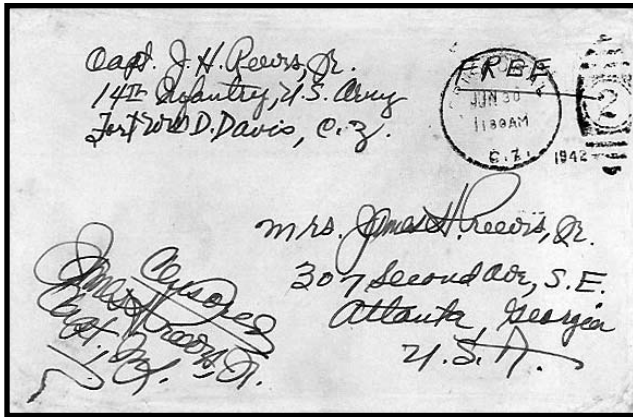 Capt. J. H. Reevis, Jr.
14th Infantry, U.S. Army
Fort Wm D. Davis, C.Z.
FREE
JUN 30
11 30 AM
C.Z. 1942
2
Mrs. James H. Reevis, Jr.
307 Second Ave, S.E.
Atlanta, Georgia
U.S.A.
Censored
James H. Reevis, Jr.
Capt. Inf.